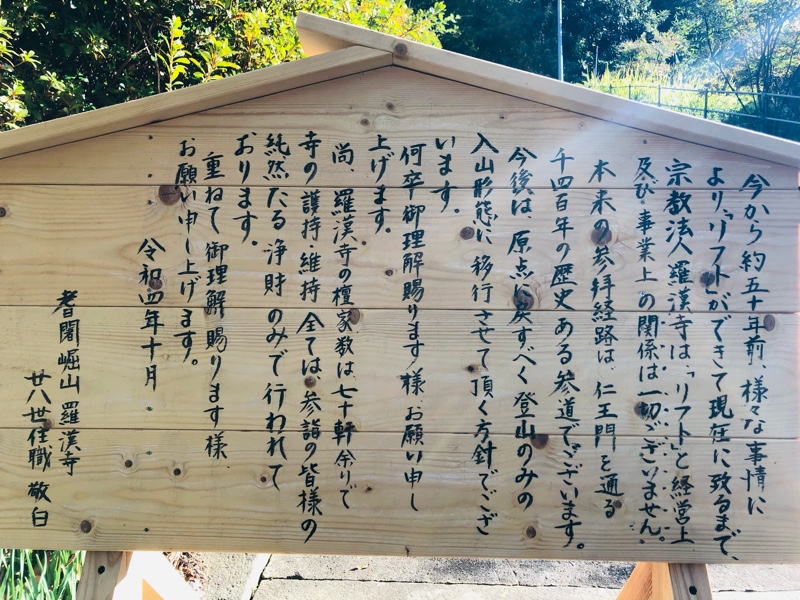 今から約五十年前、様々な事情に
より、「リフト」ができて現在に致るまで、
宗教法人羅漢寺は、「リフト」と経営上
及び事業上の関係は一切ございません。
本来の参拝経路は、仁王門を通る
千四百年の歴史ある参道でございます。
今後は、原点に戻すべく登山のみの
入山形態に移行させて頂く方針でござ
います。
何卒御理解賜ります様、お願い申し
上げます。
尚、羅漢寺の檀家数は七十軒余りで
寺の護持・維持全ては、参詣の皆様の
純然たる浄財のみで行われて
おります。
重ねて御理解賜ります様
お願い申し上げます。
令和四年十月
耆闍崛山羅漢寺
廿八世住職 敬白